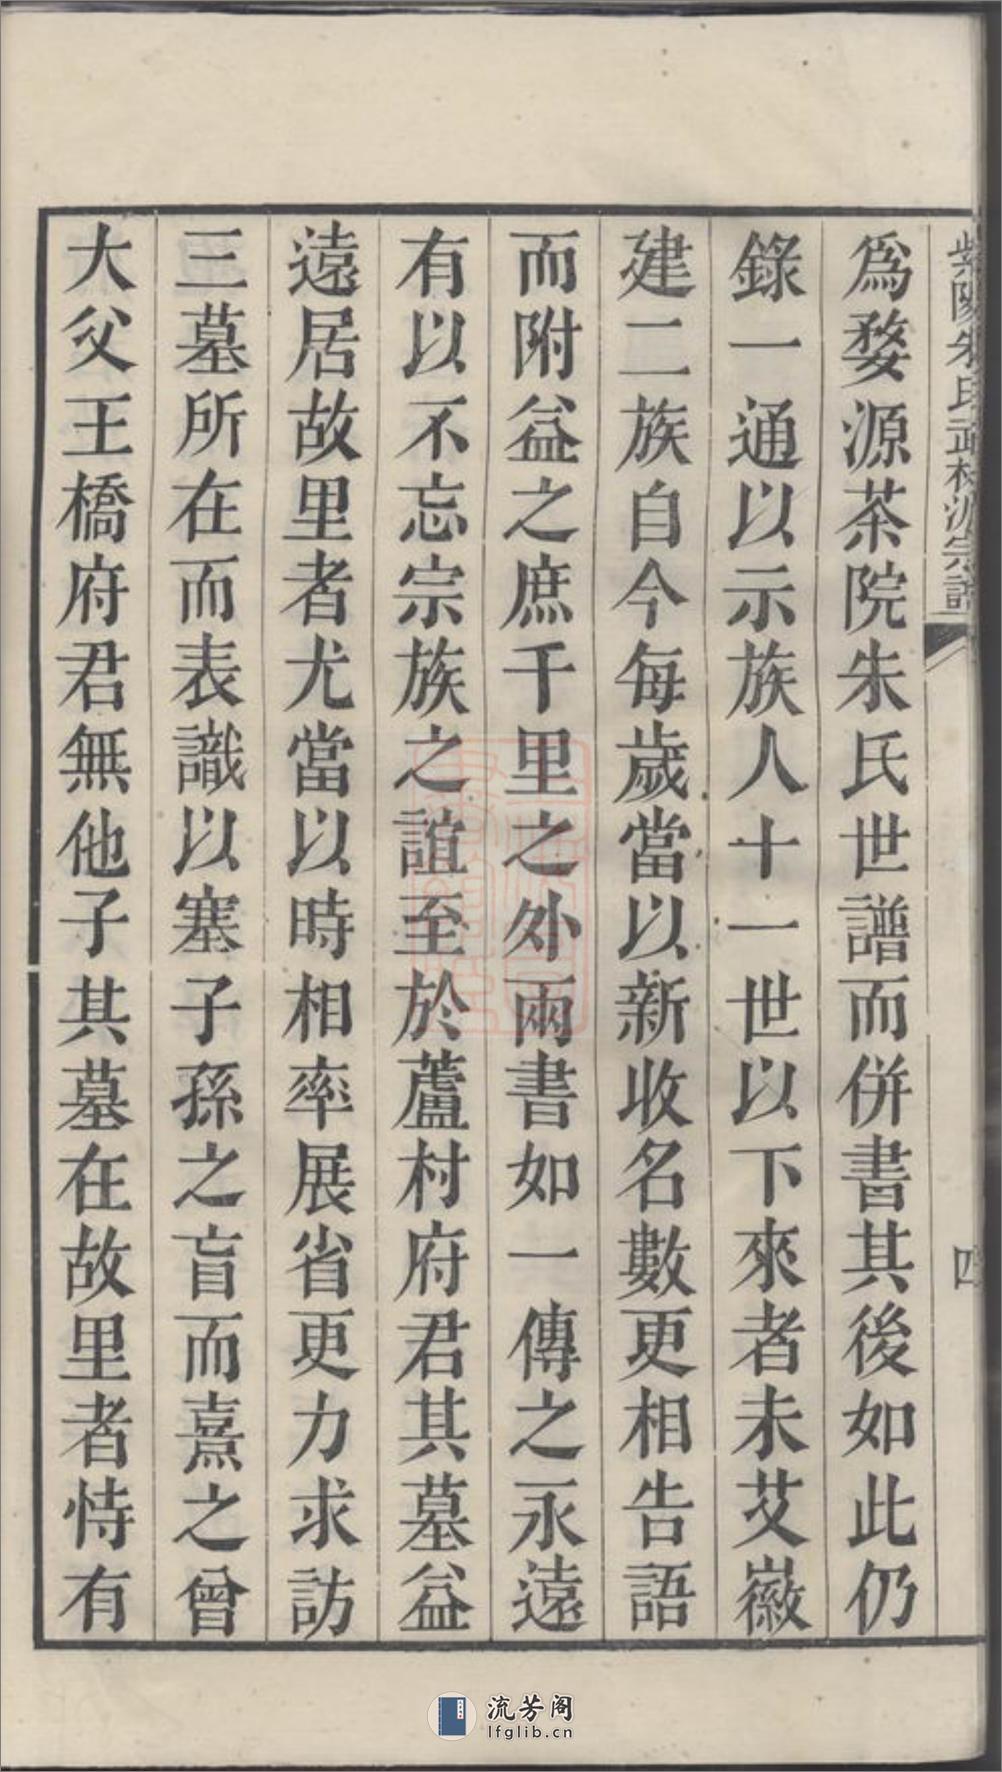 爲婺源茶院朱氏世譜而併書其後如此仍
錄一通以示族人十一世以下來者未艾徽
建二族自今每歲當以新收名數更相告語
而附益之庶千里之外兩書如一傳之永遠
有以不忘宗族之誼至於蘆村府君其墓益
遠居故里者尤當以時相率展省更力求訪
三墓所在而表識以塞子孫之盲而熹之曾
大父王橋府君無他子其墓在故里者恃有
四
流芳阁
lfglib.cn